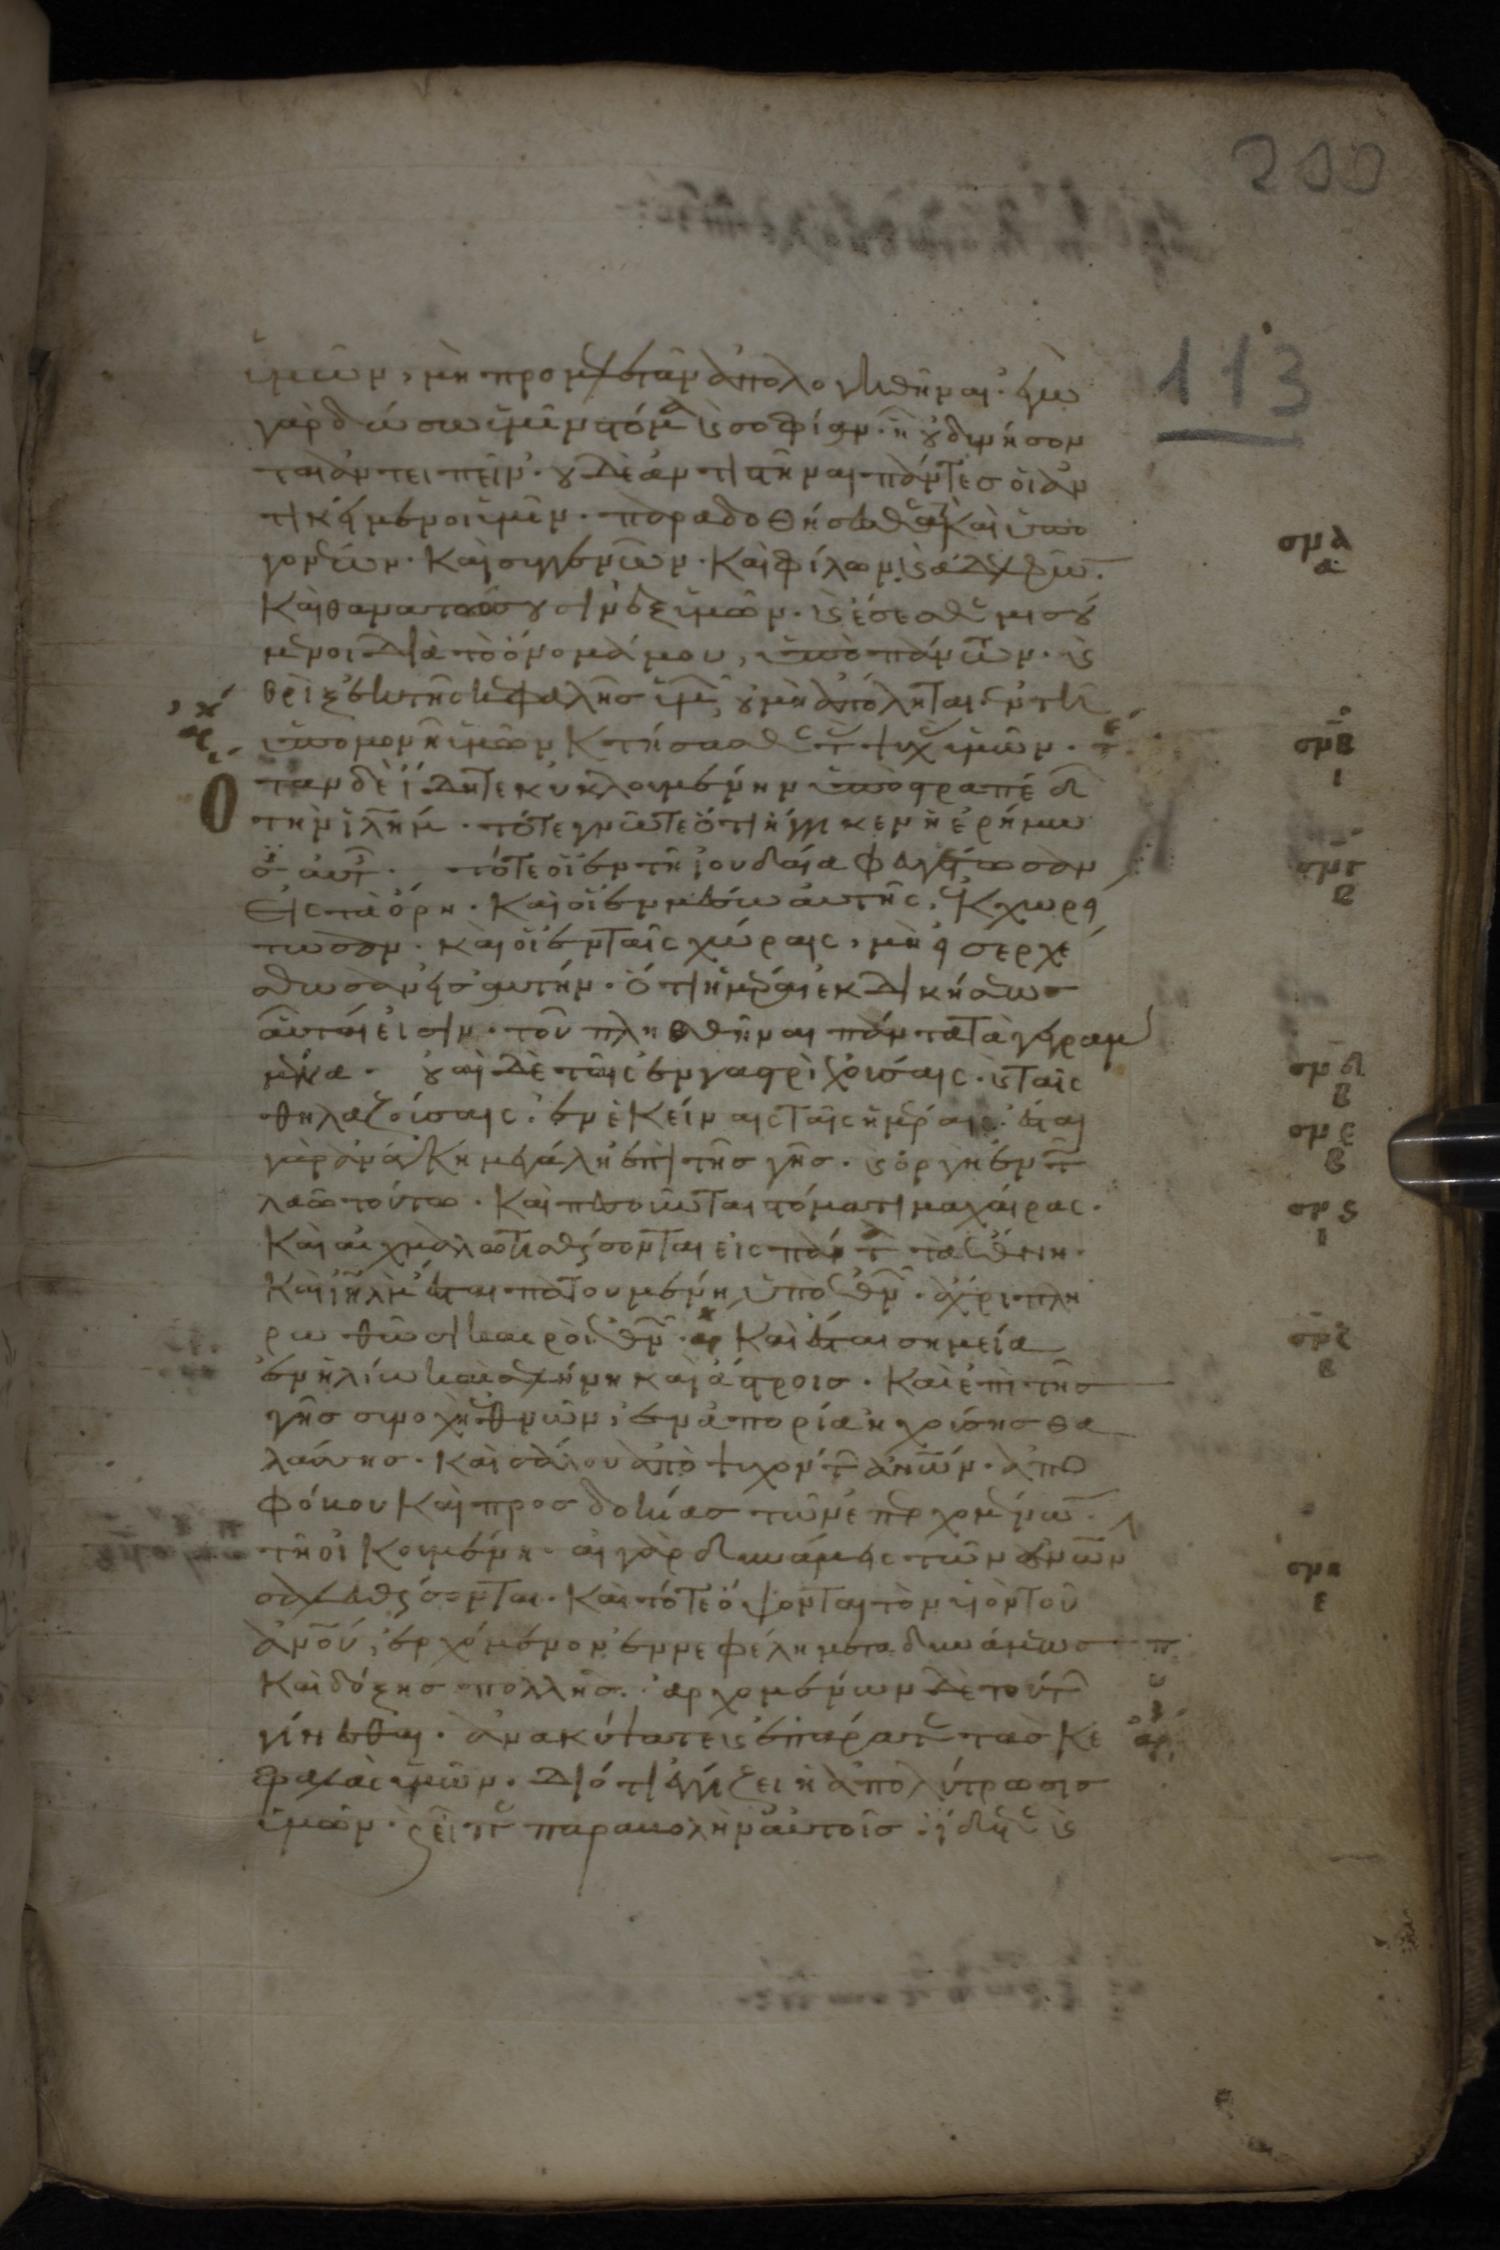 200
113
ὑμῶν, μὴ προμελεταν ἀπολογηθῆναι· ἐγὼ
γὰρ δώσω ὑμῖν στόμα κ σοφίαν· ἧ οὐ δυνήσον
ται ἀντειπεῖν· οὐδὲ ἀντιστῆναι πάντες οἱ ἀν
τικείμενοι ὑμῖν· παραδοθήσεσθε δὲ καὶ ὑπὸ
γονέων· καὶ συγγενῶν· καὶ φίλων κ ἀδελφῶν·
καὶ θανατώσουσιν ἐξ ὑμῶν· κ ἔσεσθε μισού
μενοι διὰ τὸ ὄνομά μου, ὑπὸ πάντων· κ
θρὶξ ἐκ τῆς κεφαλῆς ὑμῶν οὐ μὴ ἀπόληται· ἐν τῇ
ὑπομονῇ ὑμῶν κτήσασθε τὰς ψυχὰς ὑμῶν· τε
Ὅταν δὲ ἴδητε κυκλουμένην ὑπὸ στρατοπέδων
τὴν ἰλημ· τότε γνῶτε ὅτι ἤγγικεν ἡ ἐρήμω
σις αὐτῆς· τότε οἱ ἐν τῇ ἰουδαία φευγέτωσαν
εἰς τὰ ὄρη· καὶ οἱ ἐν μέσω αὐτῆς, ἐκχωρεί
τωσαν· καὶ οἱ ἐν ταῖς χώραις, μὴ εἰσερχέ
σθωσαν εἰς αὐτήν· ὅτι ἡμέραι ἐκδικήσεως
αὗταί εἰσιν· τοῦ πλησθῆναι πάντα τὰ γεγραμ
μένα· οὐαὶ δὲ ταῖς ἐν γαστρὶ ἐχούσαις· κ ταῖς
θηλαζούσαις, ἐν ἐκείναις ταῖς ἡμέραις· ἔσται
γὰρ ἀνάγκη μεγάλη ἐπὶ τῆς γῆς· κ ὀργὴ ἐν τῶ
λαῶ τούτω· καὶ πεσοῦνται στόματι μαχαίρας·
καὶ αἰχμαλωτισθήσονται εἰς πάντα τὰ ἔθνη·
καὶ ἰηλὴμ ἔσται πατουμένη ὑπὸ ἐθνῶν· ἄχρι πλη
ρωθῶσι καιροὶ ἐθνῶν· καὶ ἔσται σημεία
ἐν ἡλίω καὶ σελήνη καὶ ἄστροις· καὶ ἐπὶ τῆς
γῆς συνοχὴ ἐθνῶν, ἐν ἀπορία ἠχούσης θα
λάσσης· καὶ σάλου ἀποψυχόντων ἀνων· ἀπὸ
φόβου καὶ προσδοκίας τῶν ἐπερχομένων
τῇ οἰκουμένη· αἱ γὰρ δυνάμεις τῶν οὐνῶν
σαλευθήσονται· καὶ τότε ὄψονται τὸν υἱὸν τοῦ
ἀνου, ἐρχόμενον ἐν νεφέλη μετα δυνάμεως
καὶ δόξης πολλῆς· ἀρχομένων δὲ τούτων
γίνεσθαι· ἀνακύψατε κ ἐπάρατε τὰς κε
φαλὰς ὑμῶν· διότι ἐγγίζει ἡ ἀπολύτρωσις
ὑμῶν· κ εἶπε παραβολὴν αὐτοῖς· ἴδετε
σμα
α
σμβ
ι
σμγ
β
σμδ
β
σμε
β
σμς
ι
σμζ
β
σμη
ε